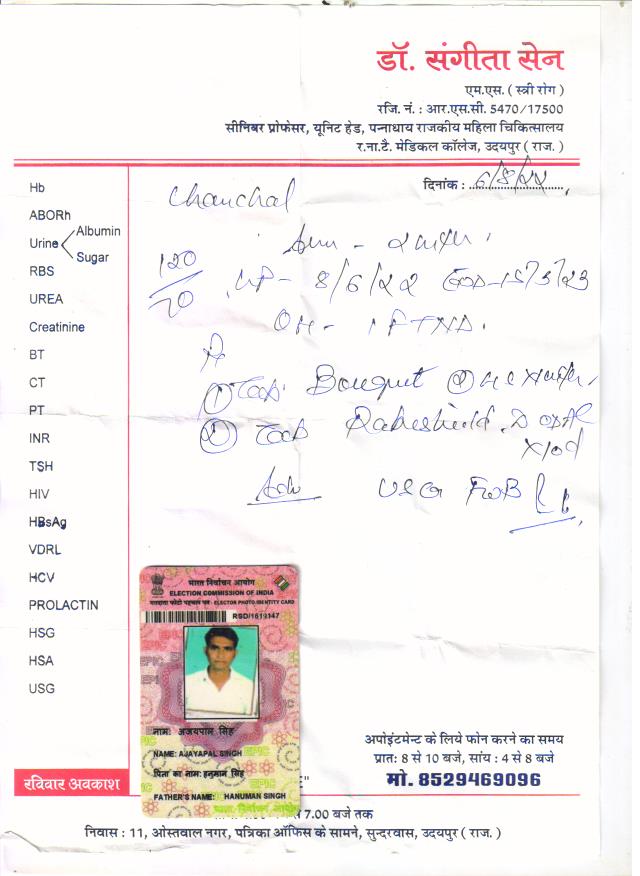 डॉ. संगीता सेन
एम.एस. ( स्त्री रोग )
रजि. नं. : आर.एस.सी. 5470/17500
सीनिबर प्रोफेसर, यूनिट हेड, पन्नाधाय राजकीय महिला चिकित्सालय
र.ना.टै. मेडिकल कॉलेज, उदयपुर ( राज. )
दिनांक : 6/8/22
Chanchal
Hb
ABORh
Urine Albumin
Sugar
RBS
UREA
Creatinine
BT
CT
PT
INR
TSH
HIV
HBsAg
VDRL
HCV
PROLACTIN
HSG
HSA
USG
120/70
8/6/22 15/3/23
OH - 1 FTND.
① Tab.
② Tab
x10d
Adv USG
भारत निर्वाचन आयोग
ELECTION COMMISSION OF INDIA
मतदाता फोटो पहचान पत्र - ELECTOR PHOTO IDENTITY CARD
RSD/1619147
नाम: अजयपाल सिंह
NAME: AJAYAPAL SINGH
पिता का नाम: हनुमान सिंह
FATHER'S NAME: HANUMAN SINGH
अपोइंटमेन्ट के लिये फोन करने का समय
प्रात: 8 से 10 बजे, सांय : 4 से 8 बजे
मो. 8529469096
रविवार अवकाश
7.00 बजे तक
निवास : 11, ओस्तवाल नगर, पत्रिका ऑफिस के सामने, सुन्दरवास, उदयपुर ( राज. )